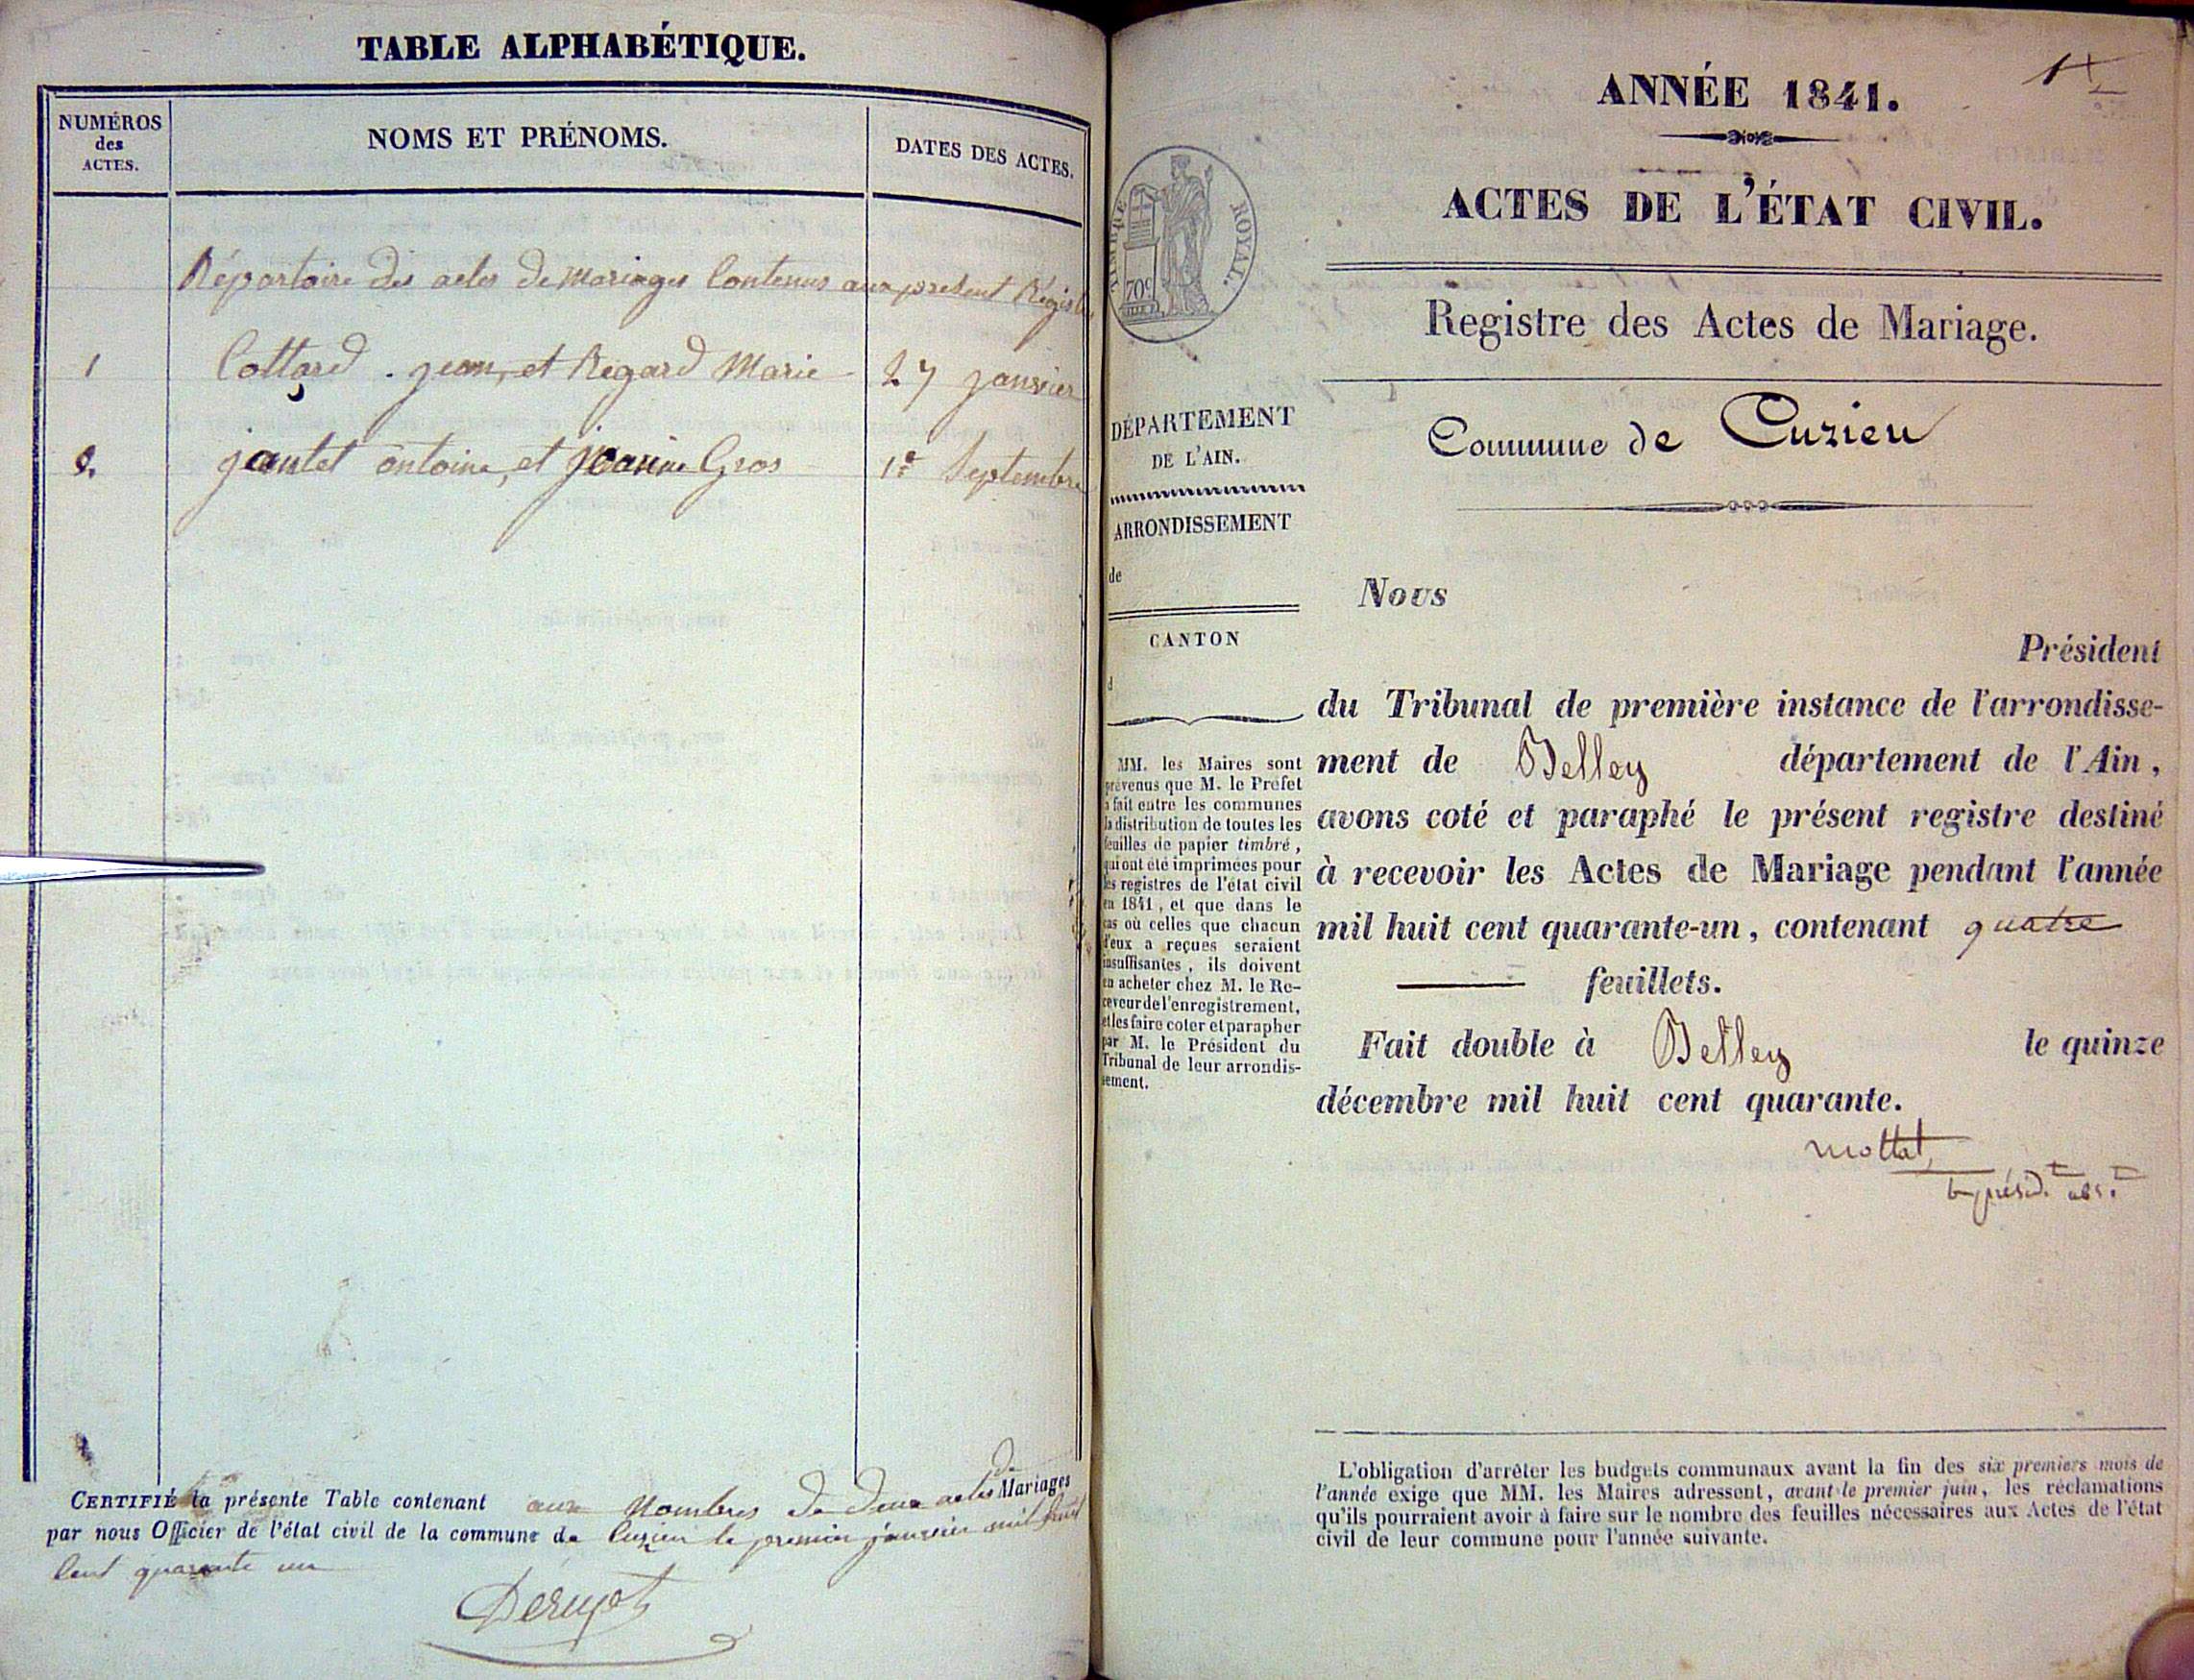 TABLE ALPHABÉTIQUE.
NUMÉROS
des
ACTES.
NOMS ET PRÉNOMS.
DATES DES ACTES.
Répertoire des actes de Mariages Contenus aux present Régist
1 Cottard . jean, et Regard Marie 27 janvier
2. jantet antoine, et jeanne Gros 1er Septembre
CERTIFIÉ la présente Table contenant aux Nombres de deux actes de Mariages
par nous Officier de l'état civil de la commune de Cuzieu le premier janvier mil huit
Cent quarante un
1
ANNÉE 1841.
ACTES DE L'ÉTAT CIVIL.
TIMBRE ROYAL.
70c
Registre des Actes de Mariage.
DÉPARTEMENT
DE L'AIN.
ARRONDISSEMENT
de
CANTON
d
MM. les Maires sont
prévenus que M. le Préfet
a fait entre les communes
la distribution de toutes les
feuilles de papier timbré,
qui ont été imprimées pour
les registres de l'état civil
en 1841, et que dans le
cas où celles que chacun
d'eux a reçues seraient
insuffisantes, ils doivent
en acheter chez M. le Re-
ceveur de l'enregistrement,
et les faire coter et parapher
par M. le Président du
Tribunal de leur arrondis-
sement.
Commune de Cuzieu
Nous
Président
du Tribunal de première instance de l'arrondisse-
ment de Belley département de l'Ain,
avons coté et paraphé le présent registre destiné
à recevoir les Actes de Mariage pendant l'année
mil huit cent quarante-un, contenant quatre
feuillets.
Fait double à Belley le quinze
décembre mil huit cent quarante.
Mottat,
L'obligation d'arrêter les budgets communaux avant la fin des six premiers mois de
l'année exige que MM. les Maires adressent, avant le premier juin, les réclamations
qu'ils pourraient avoir à faire sur le nombre des feuilles nécessaires aux Actes de l'état
civil de leur commune pour l'année suivante.